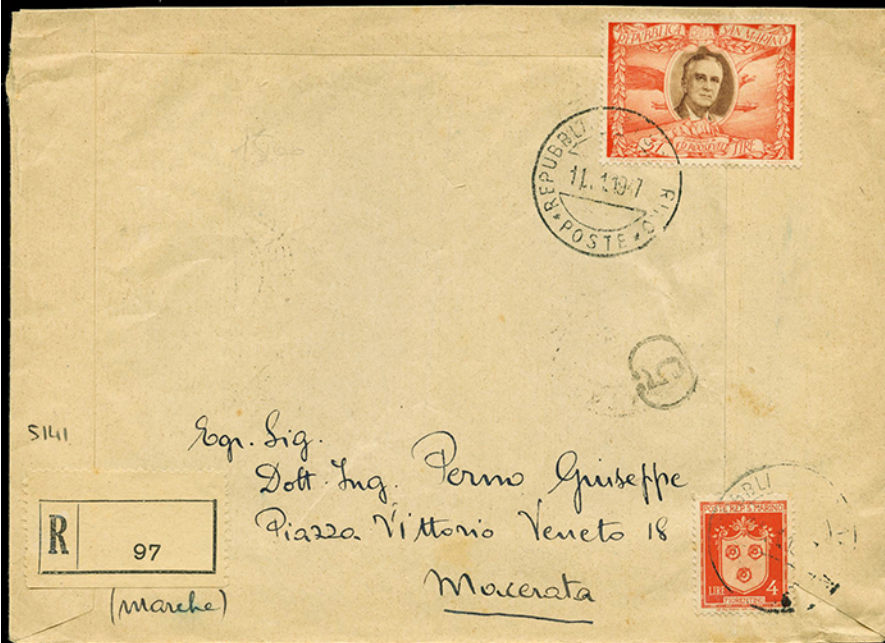 REPUBBLICA SAN MARINO
F.D. ROOSEVELT
LIRE
REPUBBLI
11.1.1947
POSTE
5141
Egr. Sig.
Dott. Ing. Perno Giuseppe
Piazza Vittorio Veneto 18
Macerata
R 97
(Marche)
BBLI
POSTE REP. S. MARINO
LIRE 4
FIORENTINO